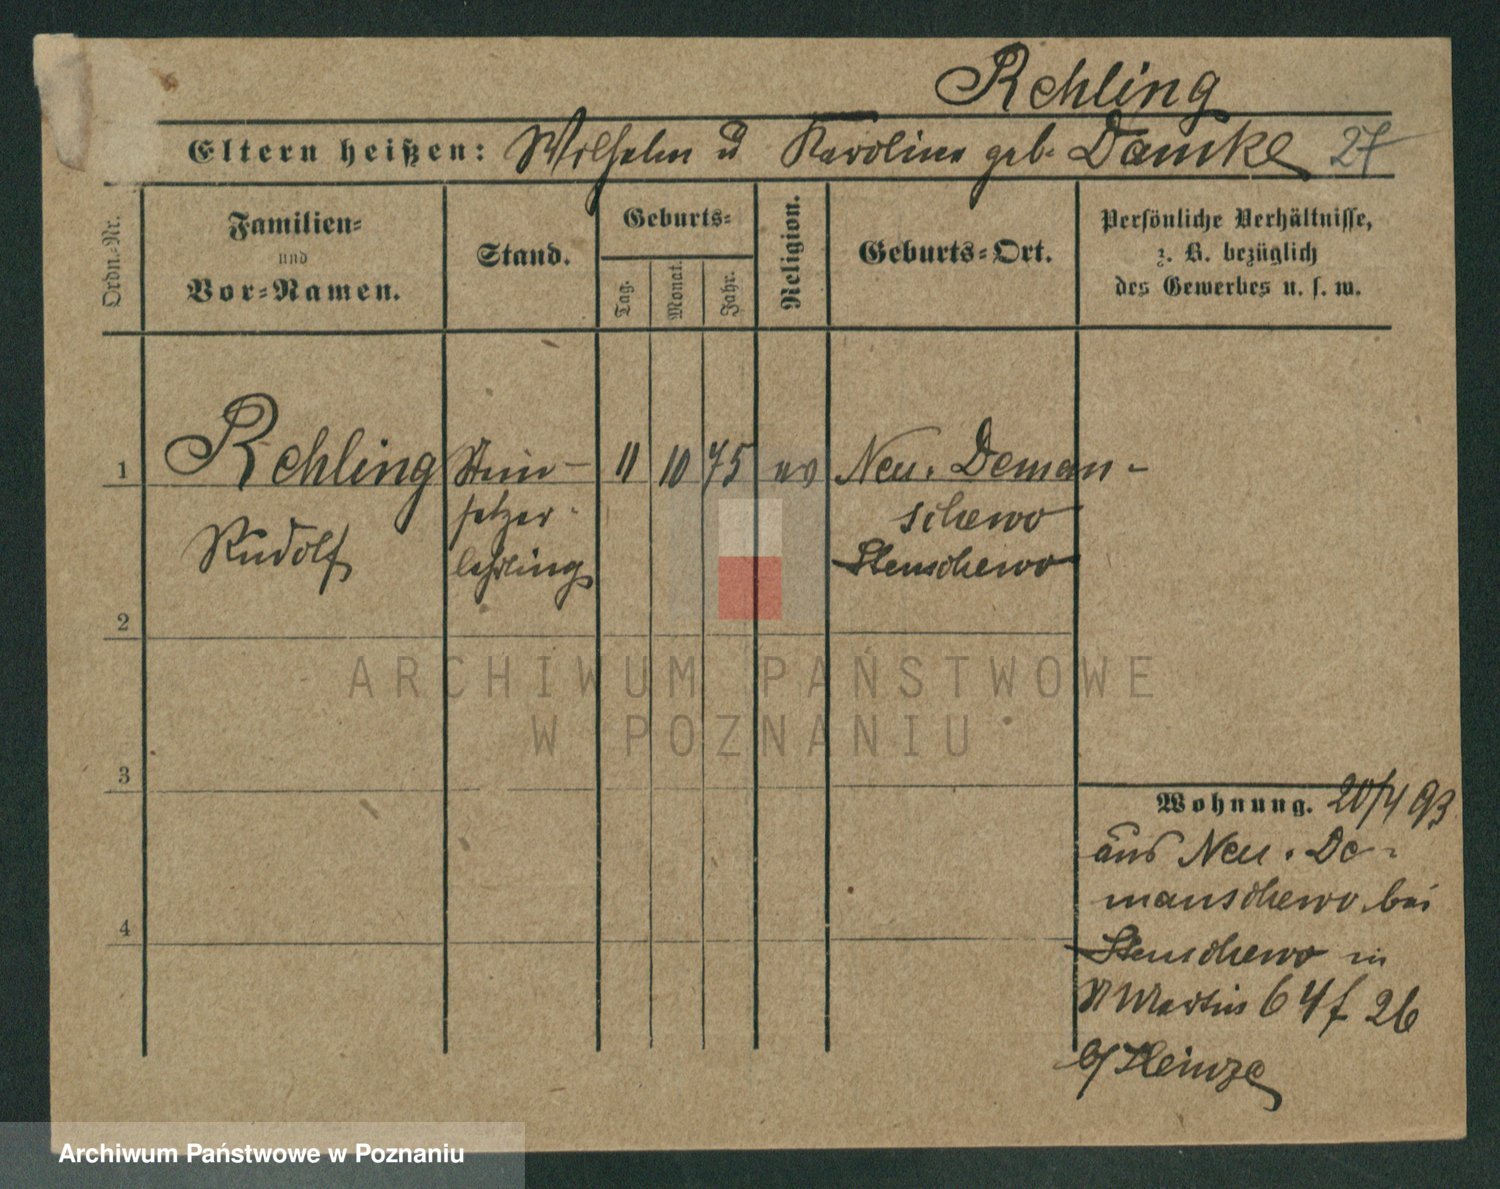 Rehling
Eltern heißen: Wilhelm u Karoline geb. Damke 27
Ordn.-Nr.
Familien-
und
Vor-Namen.
Stand.
Geburts-
Tag.
Monat.
Jahr.
Religion.
Geburts-Ort.
Persönliche Verhältnisse,
z. B. bezüglich
des Gewerbes u. s. w.
1 Rehling Stein- 11 10 75 ev Neu. Deman-
setzer- schewo
Rudolf lehrling Stenschewo
2
3
4
Wohnung. 20/4 93
aus Neu. De-
manschewo bei
Stenschewo in
St Martin 64 26
b/ Heinze
ARCHIWUM PAŃSTWOWE
W POZNANIU
Archiwum Państwowe w Poznaniu